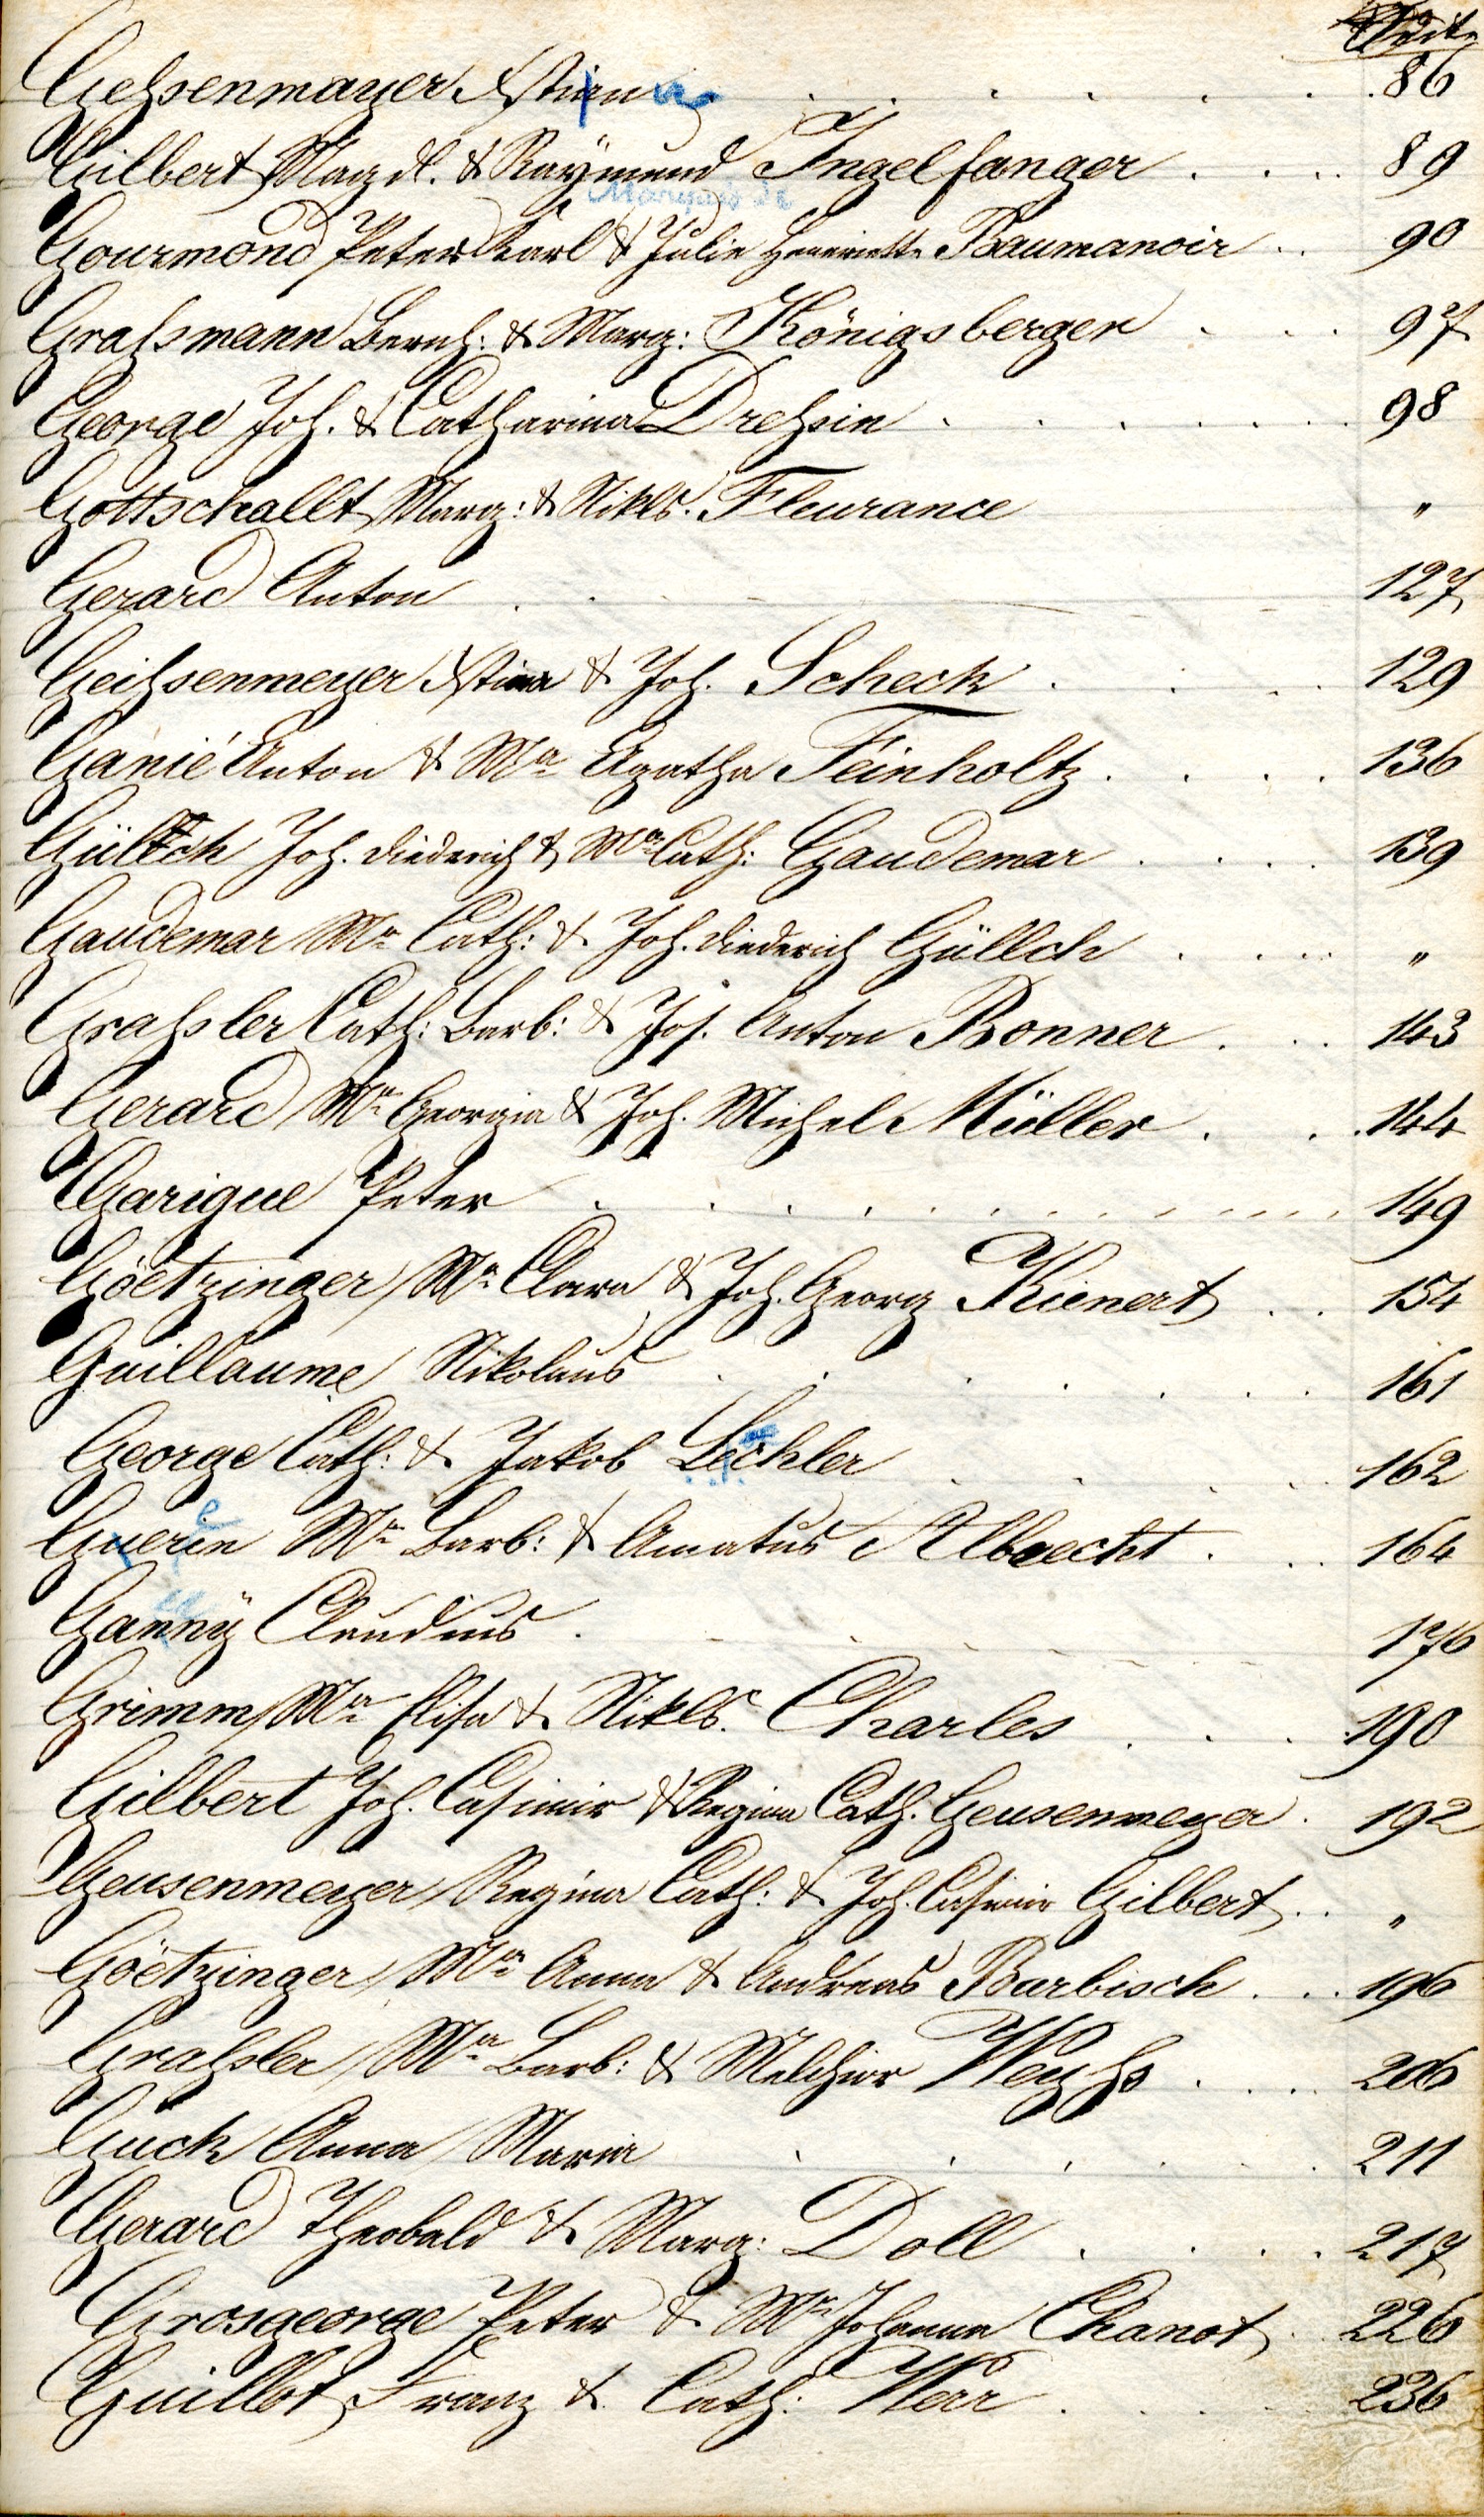 Seite
Gehsenmayer Xstina . . . . . . 86
Gilbert Magdl. & Raÿmund Ingelfanger . . . . 89
Marquis de
Gourmond Peter Karl & Julie Henriette Baumanoir . . 90
Grahsmann Bernh. & Marg: Königsberger . . . 97
George Joh. & Catharina Drehsin . . . . . . . 98
Gottschallt Marg: & Nikls. Fleurance "
Gerard Anton . . 127
Geihsenmeyer Xstina & Joh. Scheck . . . . 129
Ganié Anton & Ma Agatha Feinholtz . . . . 136
Güllch Joh. Diederich & Ma Cath: Gaudemar . . . . 139
Gaudemar Ma Cath: & Joh. Diederich Güllch . . . . "
Grahsler Cath: Barb: & Jos. Anton Bonner . . . 143
Gerard Ma Georgia & Joh. Michel Müller . . . 144
Garique Peter . . . . . . . . . . . . 149
Göetzinger Ma Clara & Joh. Georg Kienert . . 154
Guillaume Nikolaus . . . . . . . 161
George Cath: & Jakob Lechler . . . . 162
Guerin Ma Barb: & Amatus Albrecht . . . 164
Gannÿ Claudius . 176
Grimm Ma Elisa & Nikls. Charles . . . 190
Gilbert Joh. Casimir & Regina Cath. Geusenmeyer . 192
Geusenmeyer Regina Cath: & Joh. Casimir Gilbert . . "
Göetzinger Ma Anna & Andreas Barbisch . . . 196
Grahsler Ma Barb: & Melchior Weyhs . . . . 206
Guck Anna Maria . . . . . . 211
Gerard Theobald & Marg: Doll . . . . . 217
Grosgeorge Peter & Ma Johanna Chanot . . 226
Guillot Franz & Cath: Werr . . . . 236